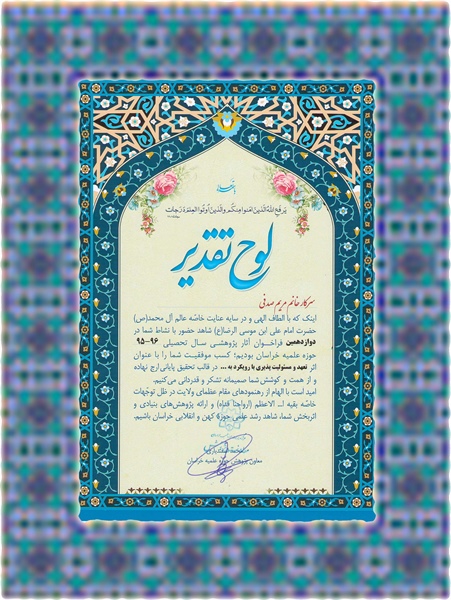 باسمه تعالی
یَرفَعِ اللهُ الَّذینَ امَنوا مِنکُم والَّذینَ اُوتُوا العِلمَ دَرَجات
لوح تقدیر
سرکار خانم مریم صدفی
اینک که با الطاف الهی و در سایه عنایت خاصّه عالم آل محمد(ص)
حضرت امام علی ابن موسی الرضا(ع) شاهد حضور با نشاط شما در
دوازدهمین فراخوان آثار پژوهشی سال تحصیلی ۹۶–۹۵
حوزه علمیه خراسان بودیم؛ کسب موفقیت شما را با عنوان
اثر تعهد و مسئولیت پذیری با رویکرد به ... در قالب تحقیق پایانی ارج نهاده
و از همت و کوشش شما صمیمانه تشکر و قدردانی می‌کنیم.
امید است با الهام از رهنمودهای مقام عظمای ولایت در ظل توجّهات
خاصّه بقیه ا... الاعظم (ارواحنا فداه) و ارائه پژوهش‌های بنیادی و
اثربخش شما، شاهد رشد علمی حوزه کهن و انقلابی خراسان باشیم.
معاون پژوهش حوزه علمیه خراسان